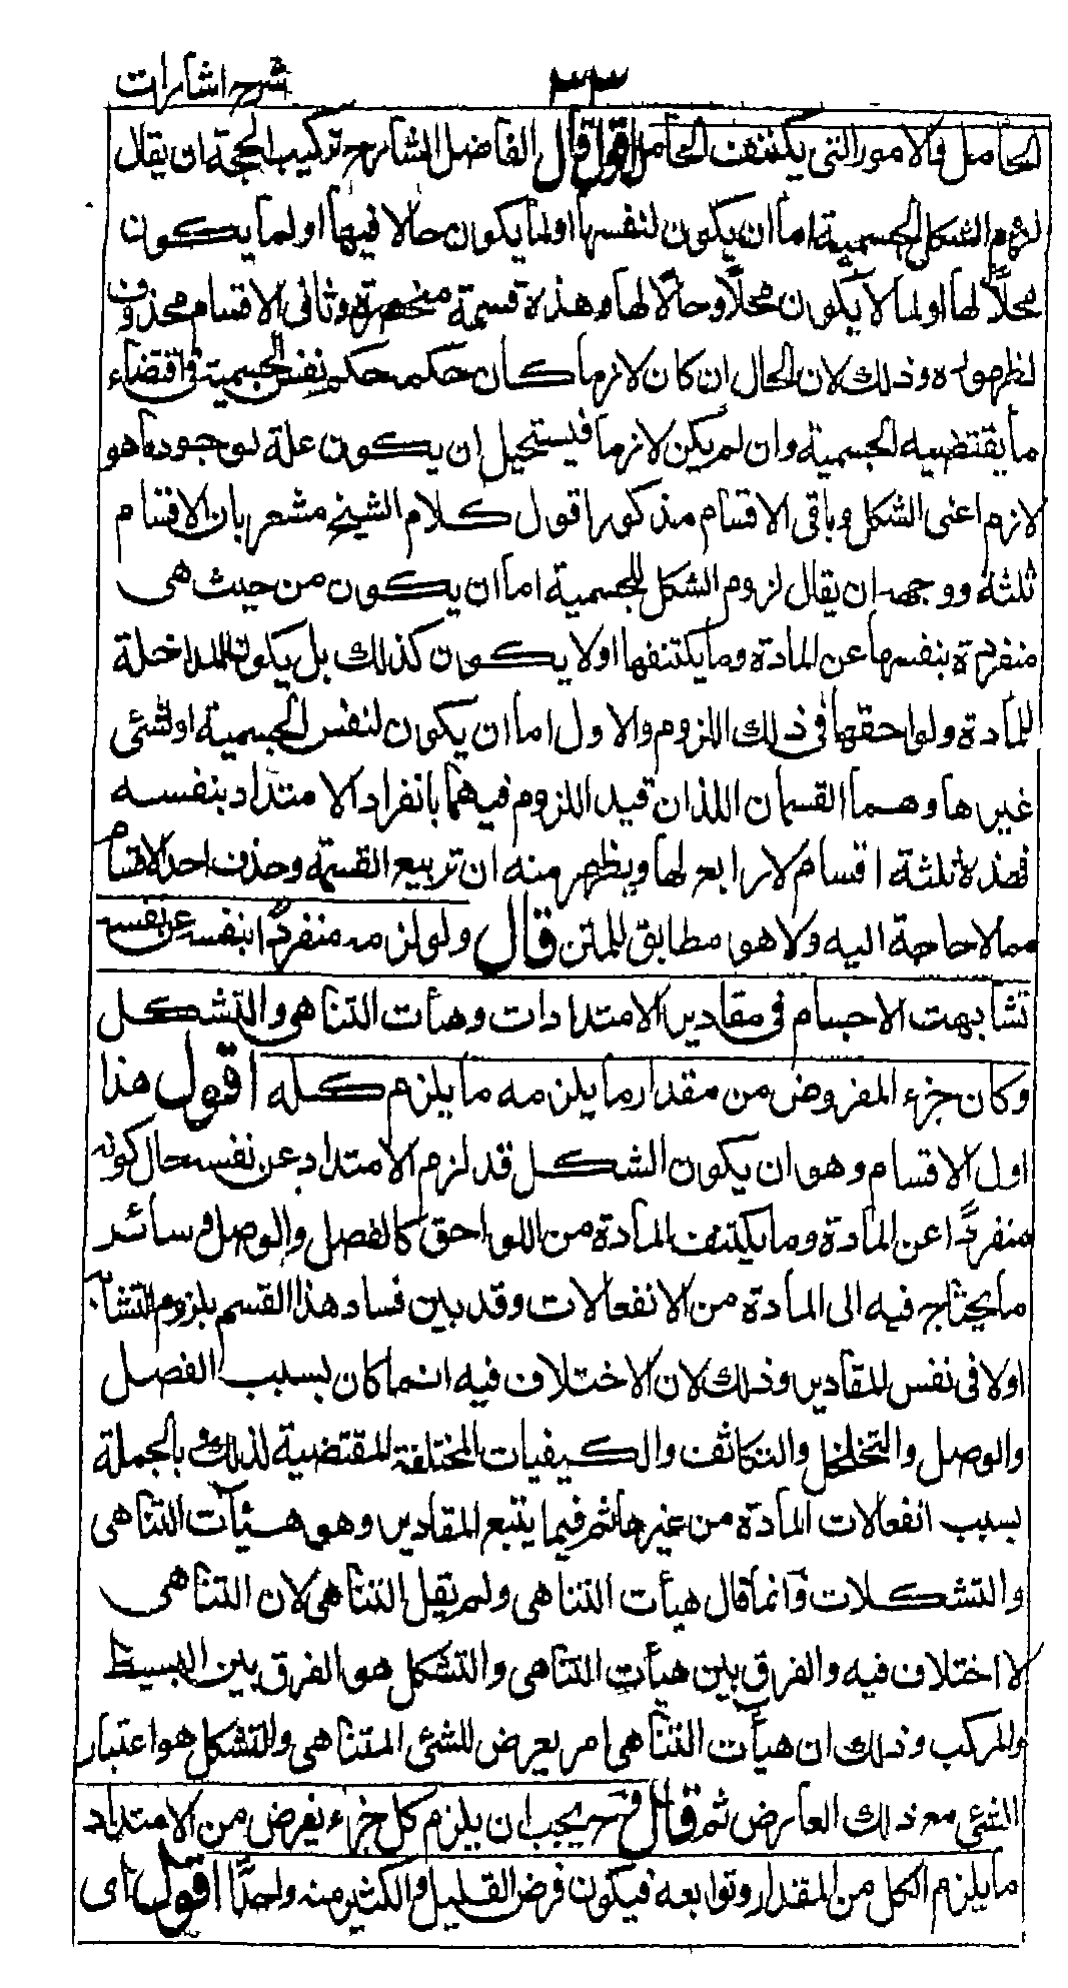 شرح اشارات
٣٣
الحامل والامور التى يكتنف الحامل اقول قال الفاضل الشارح تركيب الحجة ان يقال
لزوم الشكل للجسمية اما ان يكون لنفسها او لما يكون حالا فيها او لما يكون
محلًّا لها او لما لا يكون محلًّا و حالًّا لها وهذه قسمة منحصرة وثانى الاقسام محذوف
لظهوره وذلك لان الحال ان كان لازما كان حكمه حكم نفس الجسمية فى اقتضاء
ما يقتضيه الجسمية وان لم يكن لازما فيستحيل ان يكون علة لوجود ما هو
لازم اعنى الشكل وباقى الاقسام مذكور اقول كلام الشيخ مشعر بان الاقسام
ثلثة ووجهه ان يقال لزوم الشكل للجسمية اما ان يكون من حيث هى
منفردة بنفسها عن المادة وما يكتنفها او لا يكون كذلك بل يكون لمداخلة
المادة ولواحقها فى ذلك اللزوم والاول اما ان يكون لنفس الجسمية او لشئ
غيرها وهما القسمان اللذان قيد اللزوم فيهما بانفراد الامتداد بنفسه
فهذه ثلثة اقسام لا رابع لها ويظهر منه ان تربيع القسمة وحذف احد الاقسام
مما لا حاجة اليه ولا هو مطابق للمتن قال ولو لزمه منفردًا بنفسه عن نفسه
تشابهت الاجسام فى مقادير الامتدادات وهيأت التناهى والتشكل
وكان جزء المفروض من مقدار ما يلزمه ما يلزم كله اقول هذا
اول الاقسام وهو ان يكون الشكل قد لزم الامتداد عن نفسه حال كونه
منفردًا عن المادة وما يكتنف المادة من اللواحق كالفصل والوصل وسائر
ما يحتاج فيه الى المادة من الانفعالات وقد بين فساد هذا القسم بلزوم التشابه
اولا فى نفس المقادير وذلك لان الاختلاف فيه انما كان بسبب الفصل
والوصل والتخلخل والتكاثف والكيفيات المختلفة المقتضية لذلك وبالجملة
بسبب انفعالات المادة من غيرها ثم فيما يتبع المقادير وهو هيئآت التناهى
والتشكلات وانما قال هيأت التناهى ولم يقل التناهى لان التناهى
لا اختلاف فيه والفرق بين هيأت التناهى والتشكل هو الفرق بين البسيط
والمركب وذلك ان هيأت التناهى امر يعرض للشئ المتناهى والتشكل هو اعتبار
الشئ مع ذلك العارض ثم قال فح يجب ان يلزم كل جزء يفرض من الامتداد
ما يلزم الكل من المقدار وتوابعه فيكون فرض القليل والكثير منه واحدًا اقول اى